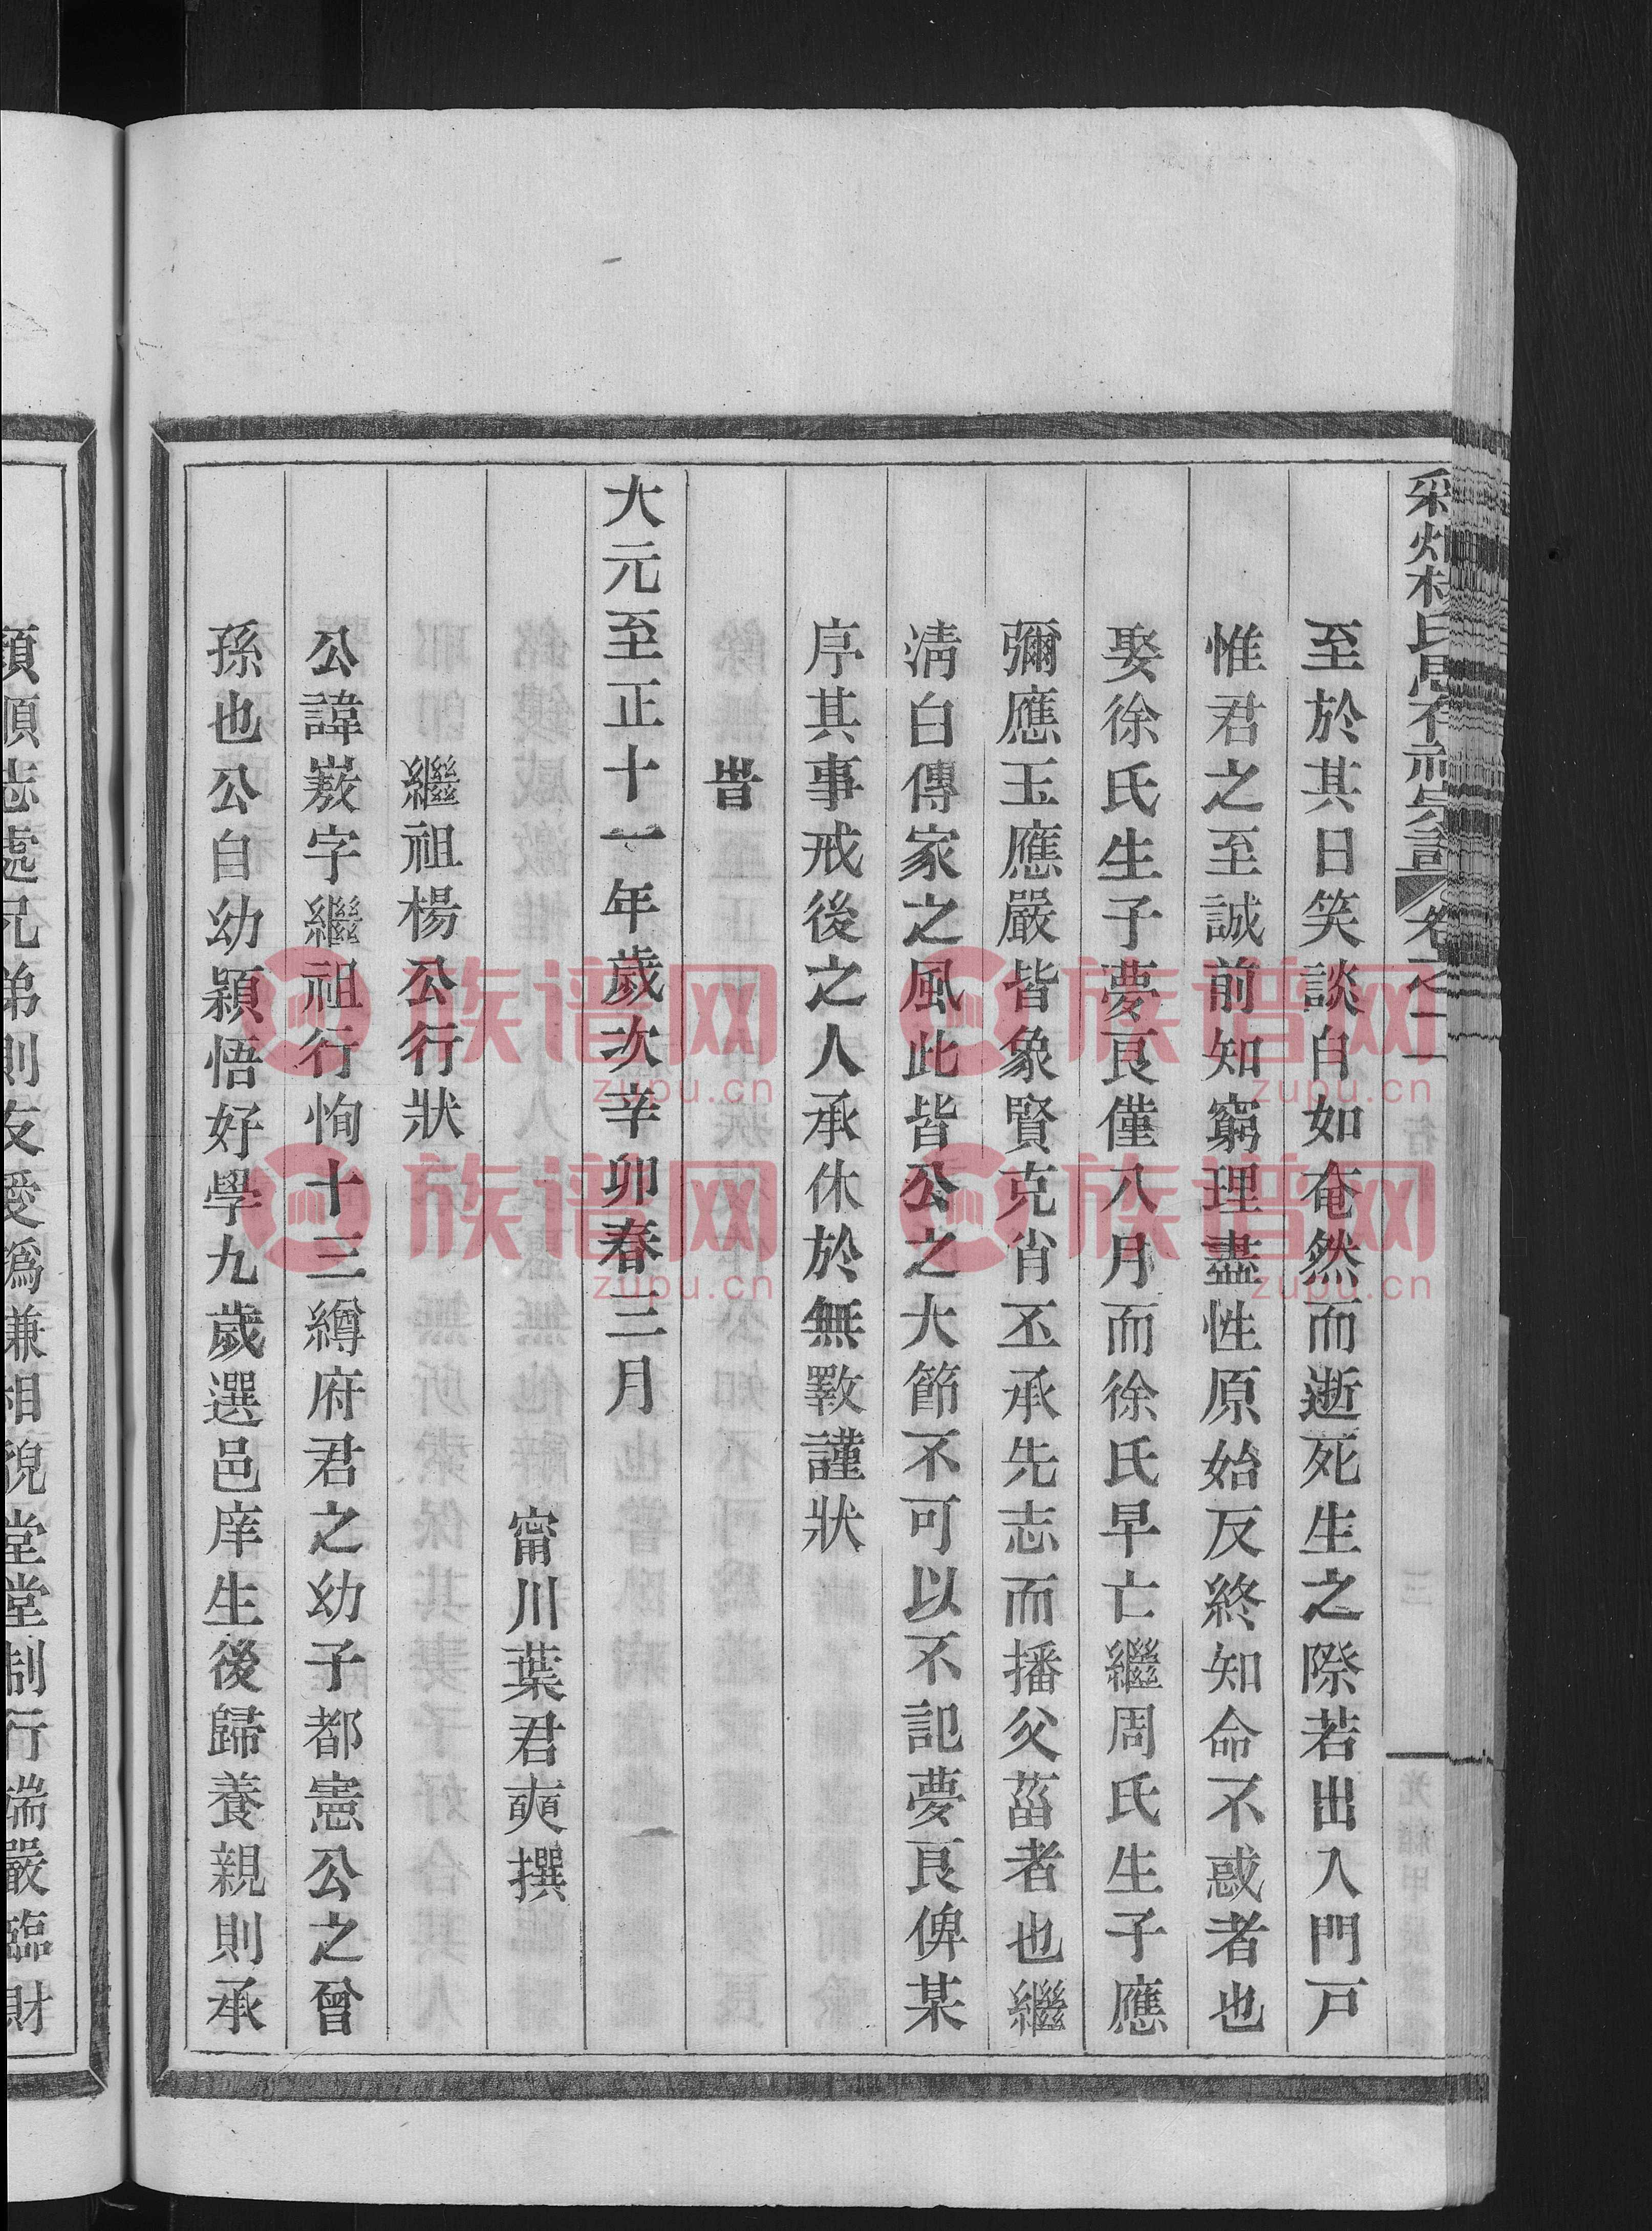 卷之一
至於其日笑談自如奄然而逝死生之際若出入門戸
惟君之至誠前知窮理盡性原始反終知命不惑者也
娶徐氏生子夢良僅八月而徐氏早亡繼周氏生子應
彌應玉應嚴皆象賢克肖丕承先志而播父菑者也繼
淸白傳家之風此皆公之大節不可以不記夢良俾某
序其事戒後之人承休於無斁謹狀
旹
大元至正十一年歲次辛卯春三月
甯川葉君奭撰
繼祖楊公行狀
公諱嶽字繼祖行恂十三繜府君之幼子都憲公之曾
孫也公自幼穎悟好學九歲選邑庠生後歸養親則承
順志處兄弟則友愛爲謙相貌堂堂制行端嚴臨財
族谱网
zupu.cn
族谱网
zupu.cn
族谱网
zupu.cn
族谱网
zupu.cn